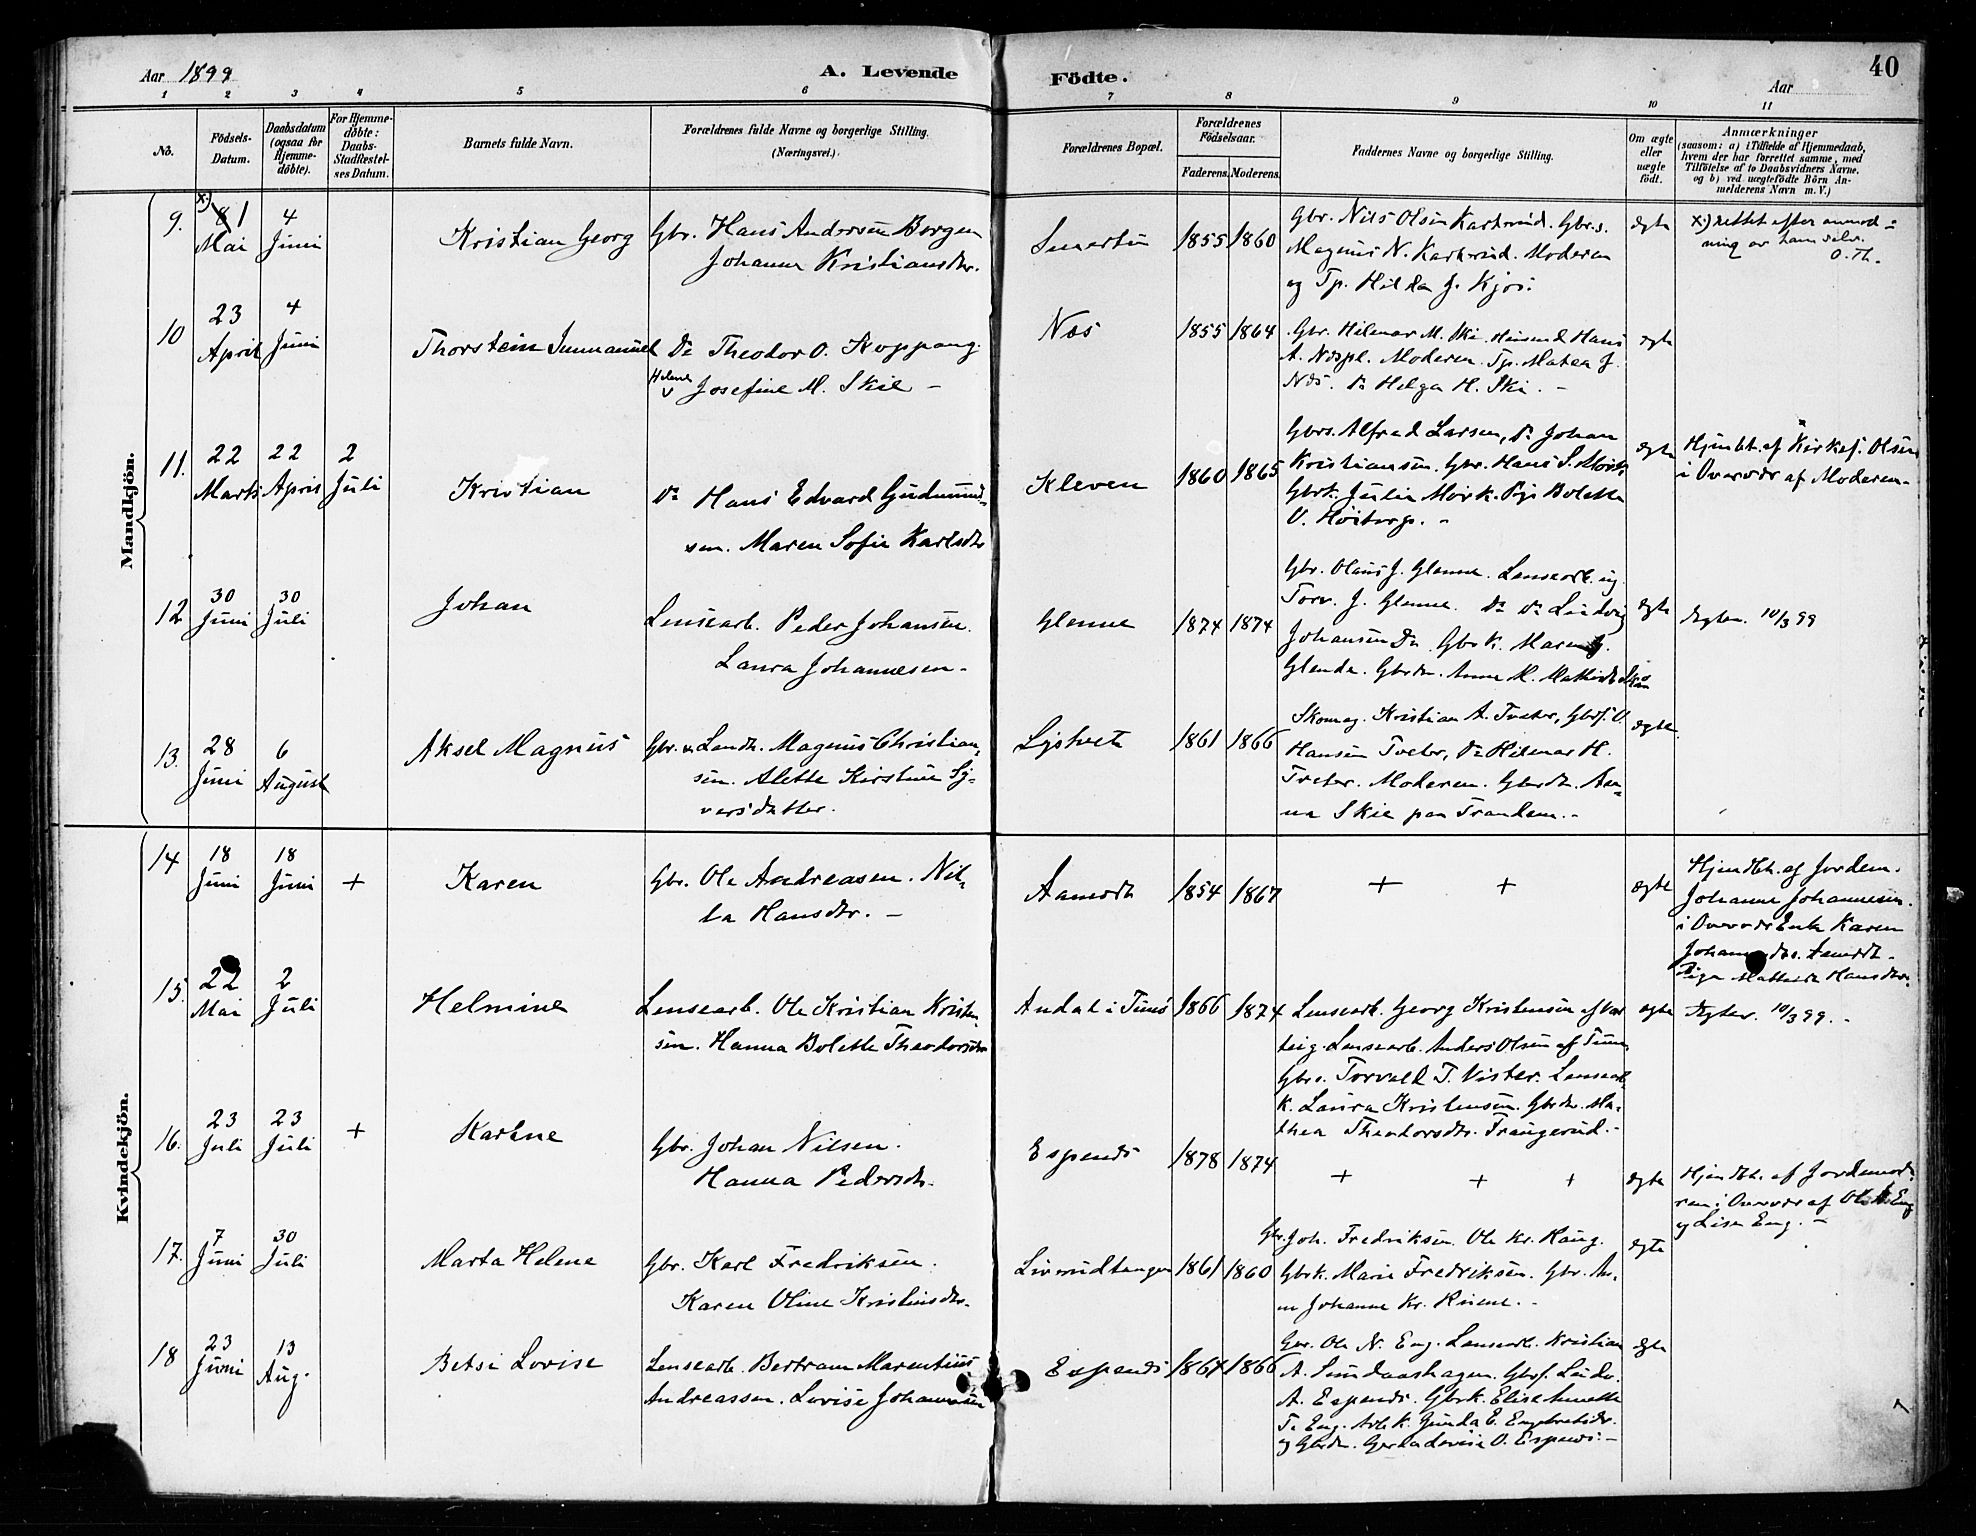 Aar 1899
A. Levende Födte.
Aar
40
1 2 3 4 5 6 7 8 9 10 11
No.
Födsels-Datum.
Daabsdatum (ogsaa for Hjemme-döbte).
For Hjemme-döbte: Daabs-Stadfæstel-ses Datum.
Barnets fulde Navn.
Forældrenes fulde Navne og borgerlige Stilling. (Næringsvei.)
Forældrenes Bopæl.
Forældrenes Födselsaar.
Faderens. Moderens.
Faddernes Navne og borgerlige Stilling.
Om ægte eller uægte födt.
Anmærkninger (saasom: a) i Tilfælde af Hjemmedaab, hvem der har forrettet samme, med Tilföielse af to Daabsvidners Navne. og b) ved uægtefödte Börn An-melderens Navn m. V.)
Mandkjön.
9. x) 8 1 Mai
4 Juni
Kristian Georg
Gbr. Hans Andersen Borgen
Johanne Kristiansdtr.
1855 1860
Gbr. Nils Olsen Karterud. Gbrs.
Magnus N. Karterud. Moderen
og Tp. Hilda J. Kjos.
ægte
x) rettet efter anmod-
ning av ham selv.
O. Th.
10
23 April
4 Juni
Thorstein Immanuel
Do Theodor O. Koppang.
Helene Josefine M. Skie -
Næs
1855 1864
Gbr. Hilmar M. Ski. Hans
A. Næspl. Moderen. Tp. Mataa J.
Næs. Do Helga H. Ski. -
ægte
11.
22 Marts
22 April
2 Juli
Kristian
Do Hans Edvard Gudmund-
sen. Maren Sofie Karlsdtr
Kleven
1860 1865
Gbrs. Alfred Larsen, Do Johan
Kristiansen. Gbr. Hans S. Mörk.
Gbrk. Julie Mörk. Pige Bolette
O. Höitorp. -
ægte
Hjemdbt. af Kirkes. Olsen
i Overvær af Moderen.
12
30 Juni
30 Juli
Johan
Lensearb. Peder Johansen.
Laura Johannesen.
Glenne
1874 1874
Gbr. Olaus J. Glenne. Lensearb. ug.
Torv. J. Glenne. Do Do Ludvig
Johansen Do. Gbrk. Maren J.
Glende. Gbrdtr. Anne M. Mathisdtr
ægte
Ægtev. 10/3 99
13.
28 Juni
6 August
Aksel Magnus
Gbr. & Landh. Magnus Christian-
sen. Alette Kirstine Sy-
versdatter.
1861 1866
Skomag. Kristian A. Tveter, Gbrs. O.
Hansen Tveter, Do Hilmar H.
Tveter. Moderen. Gbrdtr. An-
na Skie paa Trandem. -
ægte.
Kvindekjön.
14
18 Juni
18 Juni
+
Karen
Gbr. Ole Andreasen. Nil-
la Hansdtr. -
Aamodt
1854 1867
+ +
ægte
Hjemdbt. af Jordem.
Johanne Johannesen.
i Overvær Enke Karen
Johannsdtr. Aamodt.
Pige Mathilde Hansdtr.
15.
22 Mai
2 Juli
Helmine
Lensearb. Ole Kristian Kristen-
sen. Hanna Bolette Theodorsdtr
Andal i Tunö
1866 1874
Lensearb. Georg Kristensen af Var-
teig. Lensearb. Anders Olsen af Tune.
Gbrs. Torvald T. Vister. Lensearb.
K. Laura Kristensen. Gbrdtr. Ma-
thea Theodorsdtr. Frangerud. -
ægte
Ægtev. 10/3 99. -
16.
23 Juli
23 Juli
+
Karlene
Gbr. Johan Nilsen.
Hanna Pedersdtr.
Espenes
1878 1874
+ + +
ægte
Hjemdbt. af Jordemod-
ren i Overvær af Ole A. Eng
og Lisa Eng. -
17.
7 Juni
30 Juli
Marta Helene
Gbr. Karl Fredriksen.
Karen Oline Kristensdtr.
1861 1860
Gbr. Joh. Fredriksen. Ole Kr. Haug.
Gbrk. Marie Fredriksen. Gbr. An-
ne Johanne Kr. Ruene. -
ægte
18
23 Juni
13 Aug.
Betsi Lovise
Lensearb. Bertram Marentius
Andreassen. Lovise Johannesen
Espenes
1864 1866
Gbr. Ole N. Eng. Lensearb. Kristian
A. Sundaashagen. Gbrs. Ludv.
A. Espenes. Gbrk. Elise Annette
T. Eng. Arbk. Gunda E. Engebretsdtr.
og Gbrdtr. Gerda Lovise O. Espenes. -
ægte